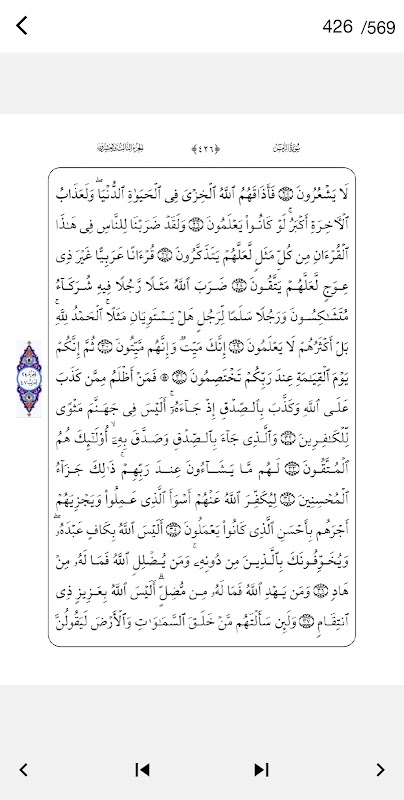 426 /569
سُورَةُ الزُّمَرِ ﴿٤٢٦﴾ الجُزْءُ الثَّالِثُ وَالعِشْرُونَ
لَا يَشْعُرُونَ فَأَذَاقَهُمُ ٱللَّهُ ٱلْخِزْىَ فِى ٱلْحَيَوٰةِ ٱلدُّنْيَا ۖ وَلَعَذَابُ
ٱلْـَٔاخِرَةِ أَكْبَرُ ۚ لَوْ كَانُوا۟ يَعْلَمُونَ وَلَقَدْ ضَرَبْنَا لِلنَّاسِ فِى هَـٰذَا
ٱلْقُرْءَانِ مِن كُلِّ مَثَلٍ لَّعَلَّهُمْ يَتَذَكَّرُونَ قُرْءَانًا عَرَبِيًّا غَيْرَ ذِى
عِوَجٍ لَّعَلَّهُمْ يَتَّقُونَ ضَرَبَ ٱللَّهُ مَثَلًا رَّجُلًا فِيهِ شُرَكَآءُ
مُتَشَـٰكِسُونَ وَرَجُلًا سَلَمًا لِّرَجُلٍ هَلْ يَسْتَوِيَانِ مَثَلًا ۚ ٱلْحَمْدُ لِلَّهِ ۚ
بَلْ أَكْثَرُهُمْ لَا يَعْلَمُونَ إِنَّكَ مَيِّتٌ وَإِنَّهُم مَّيِّتُونَ ثُمَّ إِنَّكُمْ
يَوْمَ ٱلْقِيَـٰمَةِ عِندَ رَبِّكُمْ تَخْتَصِمُونَ ۞ فَمَنْ أَظْلَمُ مِمَّن كَذَبَ
عَلَى ٱللَّهِ وَكَذَّبَ بِٱلصِّدْقِ إِذْ جَآءَهُۥٓ ۚ أَلَيْسَ فِى جَهَنَّمَ مَثْوًى
لِّلْكَـٰفِرِينَ وَٱلَّذِى جَآءَ بِٱلصِّدْقِ وَصَدَّقَ بِهِۦٓ ۙ أُو۟لَـٰٓئِكَ هُمُ
ٱلْمُتَّقُونَ لَهُم مَّا يَشَآءُونَ عِندَ رَبِّهِمْ ۚ ذَٰلِكَ جَزَآءُ
ٱلْمُحْسِنِينَ لِيُكَفِّرَ ٱللَّهُ عَنْهُمْ أَسْوَأَ ٱلَّذِى عَمِلُوا۟ وَيَجْزِيَهُمْ
أَجْرَهُم بِأَحْسَنِ ٱلَّذِى كَانُوا۟ يَعْمَلُونَ أَلَيْسَ ٱللَّهُ بِكَافٍ عَبْدَهُۥ ۖ
وَيُخَوِّفُونَكَ بِٱلَّذِينَ مِن دُونِهِۦ ۚ وَمَن يُضْلِلِ ٱللَّهُ فَمَا لَهُۥ مِنْ
هَادٍ وَمَن يَهْدِ ٱللَّهُ فَمَا لَهُۥ مِن مُّضِلٍّ ۗ أَلَيْسَ ٱللَّهُ بِعَزِيزٍ ذِى
ٱنتِقَامٍ وَلَئِن سَأَلْتَهُم مَّنْ خَلَقَ ٱلسَّمَـٰوَٰتِ وَٱلْأَرْضَ لَيَقُولُنَّ